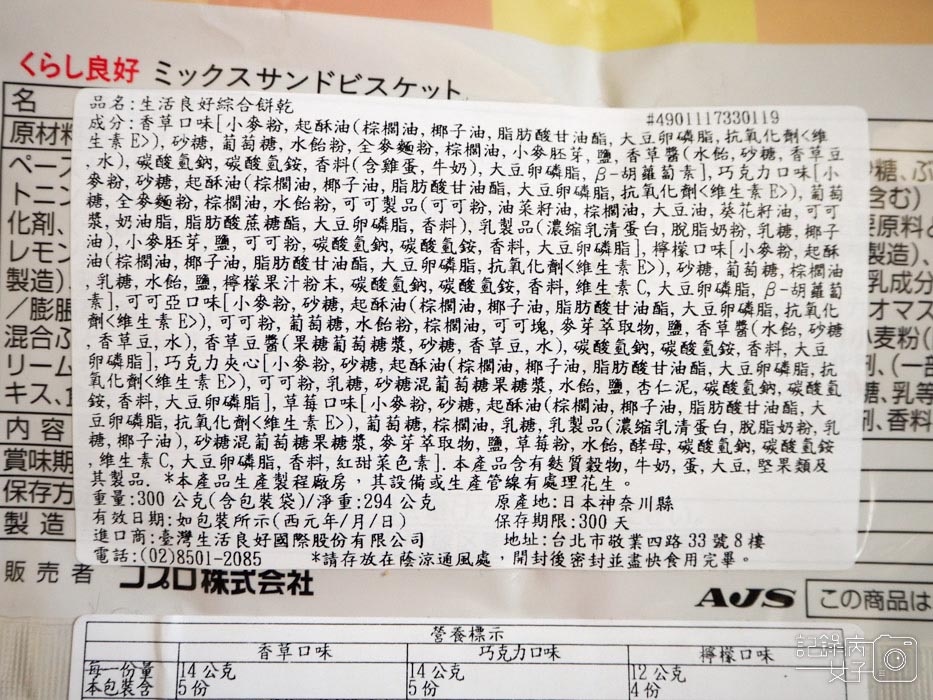 くらし良好 ミックスサンドビスケット
名
品名:生活良好綜合餅乾
#4901117330119
原材料
成分:香草口味[小麥粉, 起酥油(棕櫚油, 椰子油, 脂肪酸甘油酯, 大豆卵磷脂, 抗氧化劑<維
生素 E>), 砂糖, 葡萄糖, 水飴粉, 全麥麵粉, 棕櫚油, 小麥胚芽, 鹽, 香草醬(水飴, 砂糖, 香草豆
, 水), 碳酸氫鈉, 碳酸氫銨, 香料(含雞蛋, 牛奶), 大豆卵磷脂, β-胡蘿蔔素], 巧克力口味[小
麥粉, 砂糖, 起酥油(棕櫚油, 椰子油, 脂肪酸甘油酯, 大豆卵磷脂, 抗氧化劑<維生素 E>), 葡萄
糖, 全麥麵粉, 棕櫚油, 水飴粉, 可可製品(可可粉, 油菜籽油, 棕櫚油, 大豆油, 葵花籽油, 可可
漿, 奶油脂, 脂肪酸蔗糖酯, 大豆卵磷脂, 香料), 乳製品(濃縮乳清蛋白, 脫脂奶粉, 乳糖, 椰子
油), 小麥胚芽, 鹽, 可可粉, 碳酸氫鈉, 碳酸氫銨, 香料, 大豆卵磷脂], 檸檬口味[小麥粉, 起酥
油(棕櫚油, 椰子油, 脂肪酸甘油酯, 大豆卵磷脂, 抗氧化劑<維生素 E>), 砂糖, 葡萄糖, 棕櫚油
, 乳糖, 水飴, 鹽, 檸檬果汁粉末, 碳酸氫鈉, 碳酸氫銨, 香料, 維生素 C, 大豆卵磷脂, β-胡蘿蔔
素], 可可亞口味[小麥粉, 砂糖, 起酥油(棕櫚油, 椰子油, 脂肪酸甘油酯, 大豆卵磷脂, 抗氧化
劑<維生素 E>), 可可粉, 葡萄糖, 水飴粉, 棕櫚油, 可可塊, 麥芽萃取物, 鹽, 香草醬(水飴, 砂糖
, 香草豆, 水), 香草豆醬(果糖葡萄糖漿, 砂糖, 香草豆, 水), 碳酸氫鈉, 碳酸氫銨, 香料, 大豆
卵磷脂], 巧克力夾心[小麥粉, 砂糖, 起酥油(棕櫚油, 椰子油, 脂肪酸甘油酯, 大豆卵磷脂, 抗
氧化劑<維生素 E>), 可可粉, 乳糖, 砂糖混葡萄糖果糖漿, 水飴, 鹽, 杏仁泥, 碳酸氫鈉, 碳酸氫
銨, 香料, 大豆卵磷脂], 草莓口味[小麥粉, 砂糖, 起酥油(棕櫚油, 椰子油, 脂肪酸甘油酯, 大
豆卵磷脂, 抗氧化劑<維生素 E>), 葡萄糖, 棕櫚油, 乳糖, 乳製品(濃縮乳清蛋白, 脫脂奶粉, 乳
糖, 椰子油), 砂糖混葡萄糖果糖漿, 麥芽萃取物, 鹽, 草莓粉, 水飴, 酵母, 碳酸氫鈉, 碳酸氫銨
, 維生素 C, 大豆卵磷脂, 香料, 紅甜菜色素]. 本產品含有麩質穀物, 牛奶, 蛋, 大豆, 堅果類及
其製品. *本產品生產製程廠房，其設備或生產管線有處理花生。
重量:300 公克(含包裝袋)/淨重:294 公克 原產地:日本神奈川縣
有效日期:如包裝所示(西元年/月/日) 保存期限:300 天
進口商:臺灣生活良好國際股份有限公司 地址:台北市敬業四路 33 號 8 樓
電話:(02)8501-2085 *請存放在蔭涼通風處，開封後密封並盡快食用完畢。
ペース
トニン
化剤、
レモン
製造)
/膨脹
混合ぶ
リーム
キス、
内容
賞味期
保存方
製造
販売者 コプロ株式会社
AJS この商品は
營養標示
香草口味 巧克力口味 檸檬口味
每一份量 14 公克 14 公克 12 公克
本包裝含 5 份 5 份 4 份
記錄肉女子